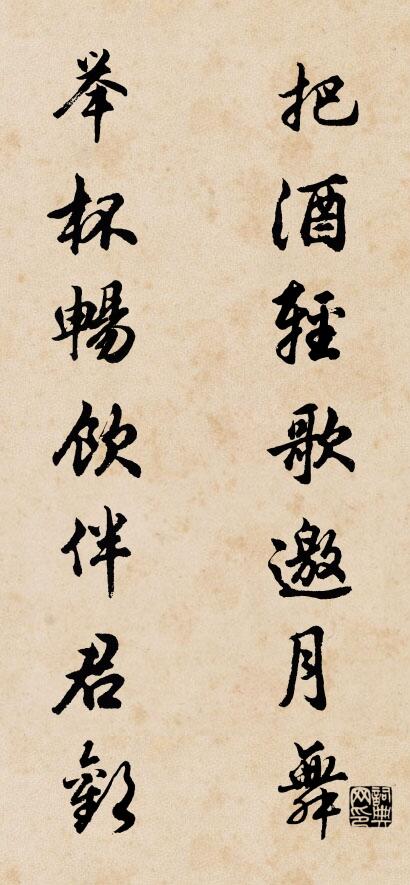 把酒輕歌邀月舞
举杯暢飲伴君歡
詞典
网印